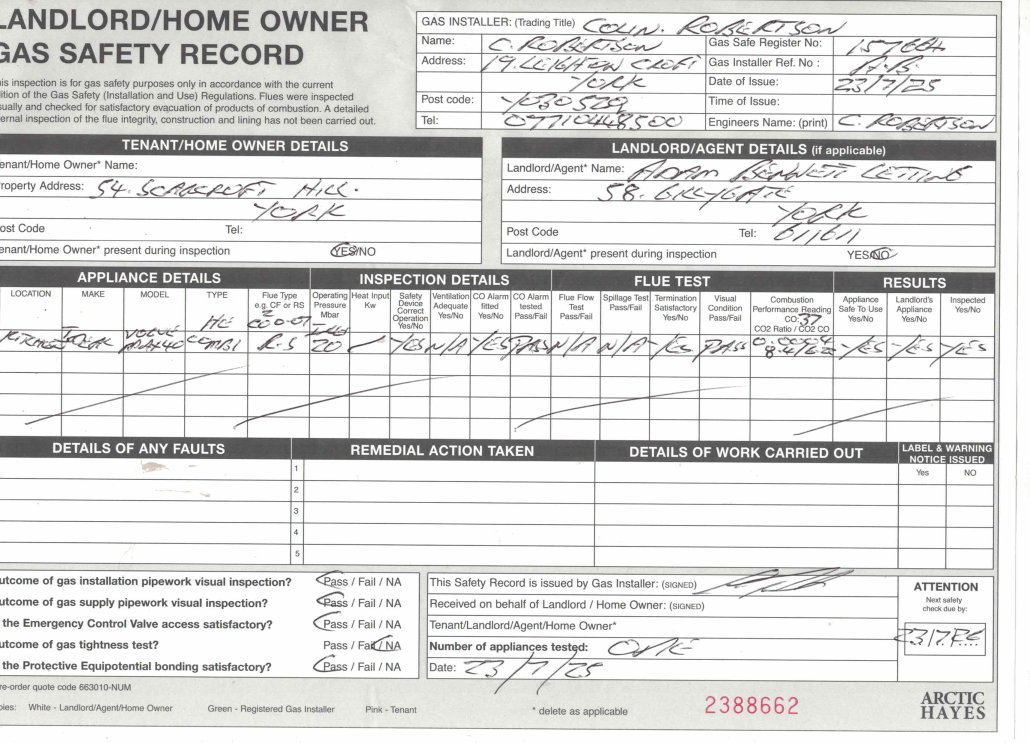 LANDLORD/HOME OWNER
GAS SAFETY RECORD
his inspection is for gas safety purposes only in accordance with the current
dition of the Gas Safety (Installation and Use) Regulations. Flues were inspected
sually and checked for satisfactory evacuation of products of combustion. A detailed
ternal inspection of the flue integrity, construction and lining has not been carried out.
GAS INSTALLER: (Trading Title) COLIN. ROBERTSON
Name: C. ROBERTSON Gas Safe Register No: 157664
Address: 19. LEIGHTON CROFT Gas Installer Ref. No :
YORK Date of Issue: 23/7/25
Post code: Time of Issue:
Tel: 07710448500 Engineers Name: (print) C. ROBERTSON
TENANT/HOME OWNER DETAILS
enant/Home Owner* Name:
roperty Address: 54. SCARCROFT HILL.
YORK
ost Code Tel:
enant/Home Owner* present during inspection YES/NO
LANDLORD/AGENT DETAILS (if applicable)
Landlord/Agent* Name: ADAM BENNETT LETTING
Address: 58. GILLYGATE
YORK
Post Code Tel: 611611
Landlord/Agent* present during inspection YES/NO
APPLIANCE DETAILS INSPECTION DETAILS FLUE TEST RESULTS
LOCATION MAKE MODEL TYPE Flue Type e.g. CF or RS Operating Pressure Mbar Heat Input Kw Safety Device Correct Operation Yes/No Ventilation Adequate Yes/No CO Alarm fitted Yes/No CO Alarm tested Pass/Fail Flue Flow Test Pass/Fail Spillage Test Pass/Fail Termination Satisfactory Yes/No Visual Condition Pass/Fail Combustion Performance Reading CO: 37 CO2 Ratio / CO2 CO Appliance Safe To Use Yes/No Landlord's Appliance Yes/No Inspected Yes/No
HE
IDEAL VOGUE MAX40 COMBI R.S 20 YES N/A YES PASS N/A N/A YES PASS YES YES YES
DETAILS OF ANY FAULTS REMEDIAL ACTION TAKEN DETAILS OF WORK CARRIED OUT LABEL & WARNING NOTICE ISSUED
Yes NO
1
2
3
4
5
utcome of gas installation pipework visual inspection? Pass / Fail / NA
utcome of gas supply pipework visual inspection? Pass / Fail / NA
the Emergency Control Valve access satisfactory? Pass / Fail / NA
utcome of gas tightness test? Pass / Fail / NA
the Protective Equipotential bonding satisfactory? Pass / Fail / NA
This Safety Record is issued by Gas Installer: (SIGNED)
Received on behalf of Landlord / Home Owner: (SIGNED)
Tenant/Landlord/Agent/Home Owner*
Number of appliances tested: ONE
Date: 23/7/25
ATTENTION
Next safety
check due by:
re-order quote code 663010-NUM
pies: White - Landlord/Agent/Home Owner Green - Registered Gas Installer Pink - Tenant
* delete as applicable
2388662
ARCTIC
HAYES